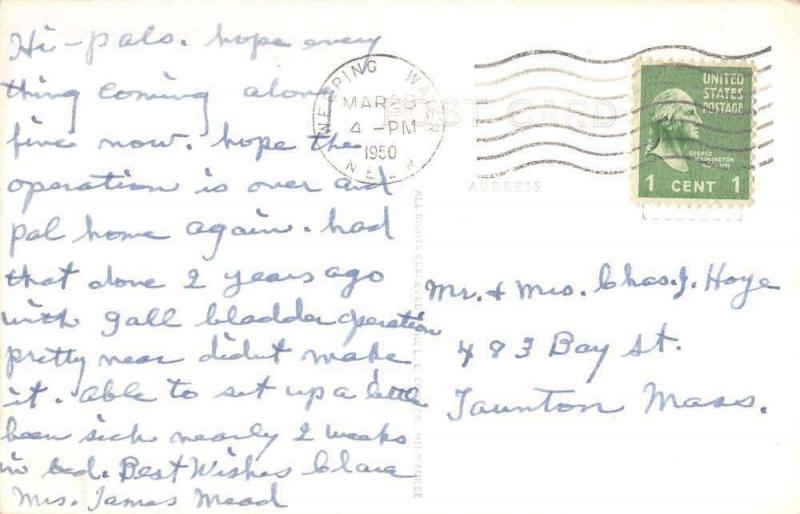 Hi-pals. hope every
thing coming along
fine now. hope the
operation is over and
pal home again. had
that done 2 years ago
with gall bladder operation
pretty near didnt make
it. able to set up a little
been sick nearly 2 weeks
in bed. Best Wishes Clara
Mrs. James Mead
WEEPING WATER
MAR 28
4 -PM
1950
NEBR
POST CARD
ADDRESS
UNITED
STATES
POSTAGE
GEORGE
WASHINGTON
1 CENT 1
Mr. & Mrs. Chas. J. Hoye
483 Bay St.
Taunton Mass.
ALL RIGHTS RESERVED L. L. COOK CO., MILWAUKEE